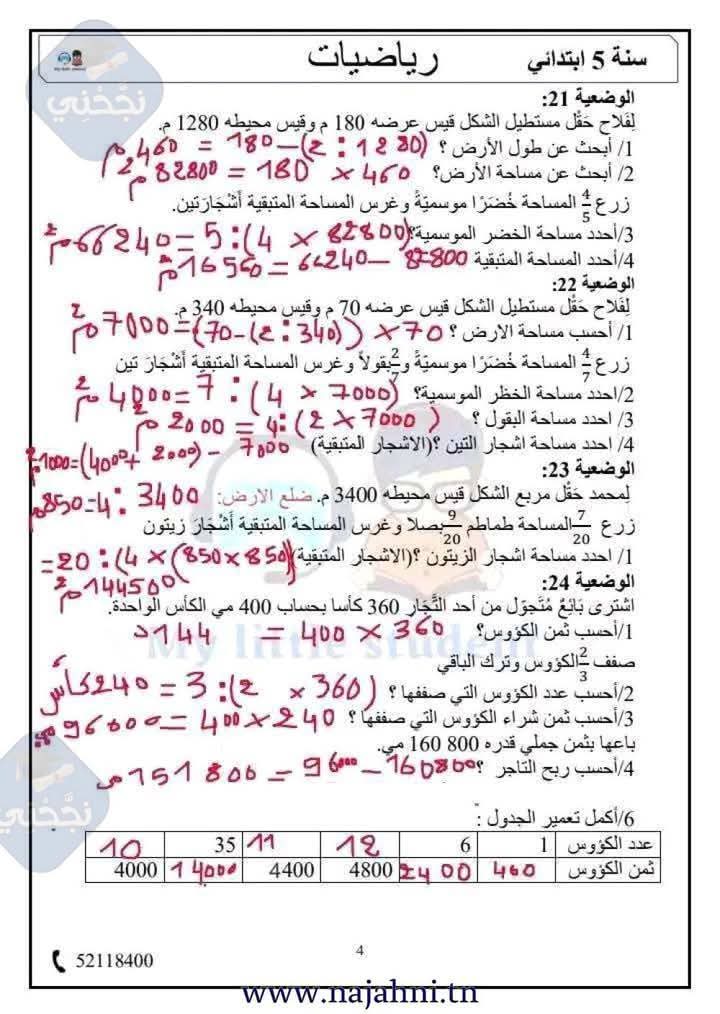 نجّحْنِي
سنة 5 ابتدائي رياضيات
الوضعية 21:
لِفَلاح حَقْل مستطيل الشكل قيس عرضه 180 م وقيس محيطه 1280 م.
1/ أبحث عن طول الأرض ؟ (1280 : 2) – 180 = 460 م
2/ أبحث عن مساحة الأرض؟ 460 × 180 = 82800 م²
زرع 4/5 المساحة خُضَرًا موسميّةً وغرس المساحة المتبقية أَشْجَارَتين.
3/أحدد مساحة الخضر الموسمية؟ (82800 × 4) : 5 = 66240 م²
4/أحدد المساحة المتبقية 82800 – 66240 = 16560 م²
الوضعية 22:
لِفَلاح حَقْل مستطيل الشكل قيس عرضه 70 م وقيس محيطه 340 م.
1/ أحسب مساحة الارض ؟ 70 × ((340 : 2) – 70) = 7000 م²
زرع 4/7 المساحة خُضَرًا موسميّةً و 2/7 بقولاً وغرس المساحة المتبقية أَشْجَارَ تين
2/احدد مساحة الخظر الموسمية؟ (7000 × 4) : 7 = 4000 م²
3/ احدد مساحة البقول ؟ (7000 × 2) : 4 = 2000 م²
4/ احدد مساحة اشجار التين ؟(الاشجار المتبقية) 7000 – (2000 + 4000) = 1000 م²
الوضعية 23:
لِمحمد حَقْل مربع الشكل قيس محيطه 3400 م. ضلع الارض: 3400 : 4 = 850 م
زرع 7/20 المساحة طماطم 9/20 بصلا وغرس المساحة المتبقية أَشْجَارَ زيتون
1/ احدد مساحة اشجار الزيتون ؟(الاشجار المتبقية) (850 × 850) × 4) : 20 =
144500 م²
الوضعية 24:
اشترى بَائِعٌ مُتَجَوّل من أحد التُّجَار 360 كأسا بحساب 400 مي الكأس الواحدة.
1/أحسب ثمن الكؤوس؟ 360 × 400 = 144 د
My little student
صفف 2/3 الكؤوس وترك الباقي
2/أحسب عدد الكؤوس التي صففها ؟ (360 × 2) : 3 = 240 كأس
3/أحسب ثمن شراء الكؤوس التي صففها ؟ 240 × 400 = 96000 مي
باعها بثمن جملي قدره 800 160 مي.
4/أحسب ربح التاجر ؟ 160800 – 9600 = 151 800 مي
نجّحْنِي
6/أكمل تعمير الجدول :
عدد الكؤوس 1 6 12 11 35 10
ثمن الكؤوس 400 2400 4800 4400 14000 4000
52118400
4
www.najahni.tn